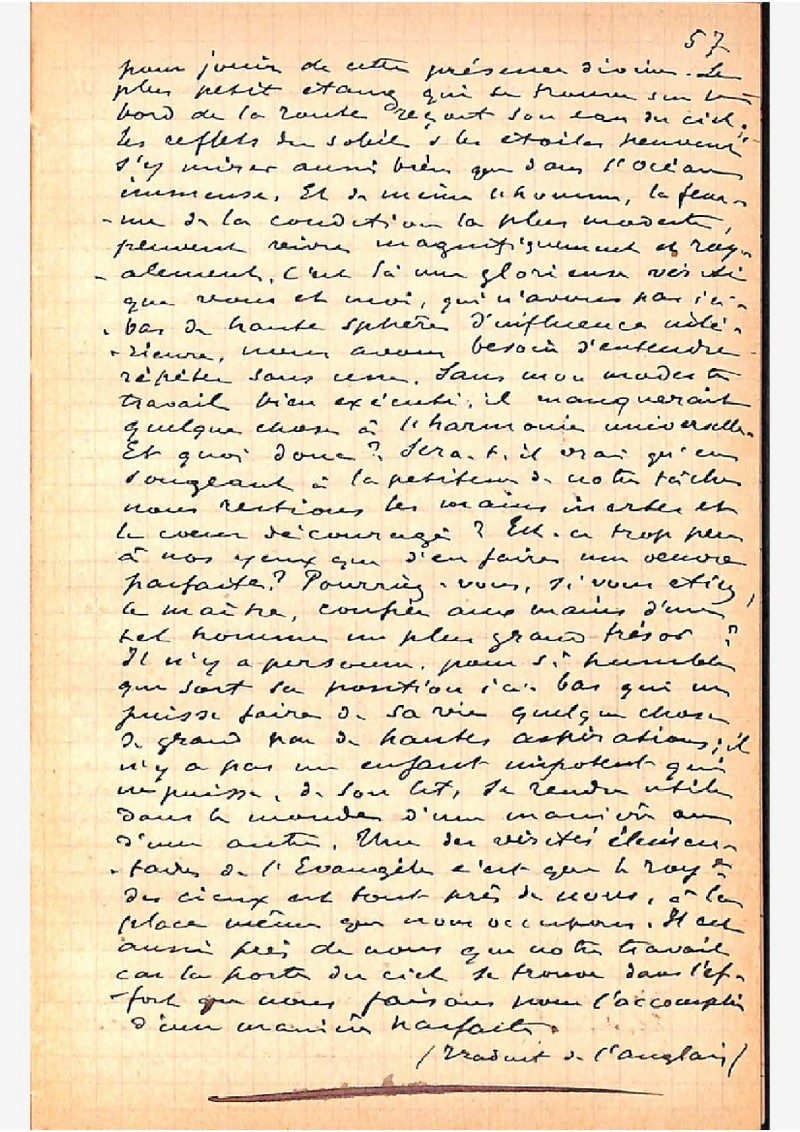 57
pour jouir de cette présence divine. Le
plus petit étang qui se trouve sur le
bord de la route reçoit son eau du ciel;
les reflets du soleil & les étoiles peuvent
s'y mirer aussi bien que dans l'Océan
immense. Et de même l'homme, la fem-
-me de la condition la plus modeste,
peuvent vivre magnifiquement et roy-
-alement. C'est là une glorieuse vérité
que vous et moi, qui n'avons pas ici-
bas de haute sphère d'influence exté-
-rieure, nous avons besoin d'entendre
répéter sans cesse. Sans mon modeste
travail bien exécuté, il manquerait
quelque chose à l'harmonie universelle.
Et quoi donc? Sera-t-il vrai qu'en
songeant à la petitesse de notre tâche
nous restions les mains inertes et
le coeur découragé? Est-ce trop peu
à nos yeux que d'en faire une oeuvre
parfaite? Pourriez-vous, si vous étiez
le maître, confier aux mains d'un
tel homme un plus grand trésor?
Il n'y a personne, pour si humble
que soit sa position ici-bas qui ne
puisse faire de sa vie quelque chose
de grand par de hautes aspirations; il
n'y a pas un enfant impotent qui
ne puisse, de son lit, se rendre utile
dans le monde d'une manière ou
d'une autre. Une des vérités élémen-
-taires de l'Evangile c'est que le roy
des cieux est tout près de nous, à la
place même que nous occupons. Il est
aussi près de nous que notre travail
car la porte du ciel se trouve dans l'ef-
-fort que nous faisons pour l'accomplir
d'une manière parfaite.
(Traduit de l'anglais)